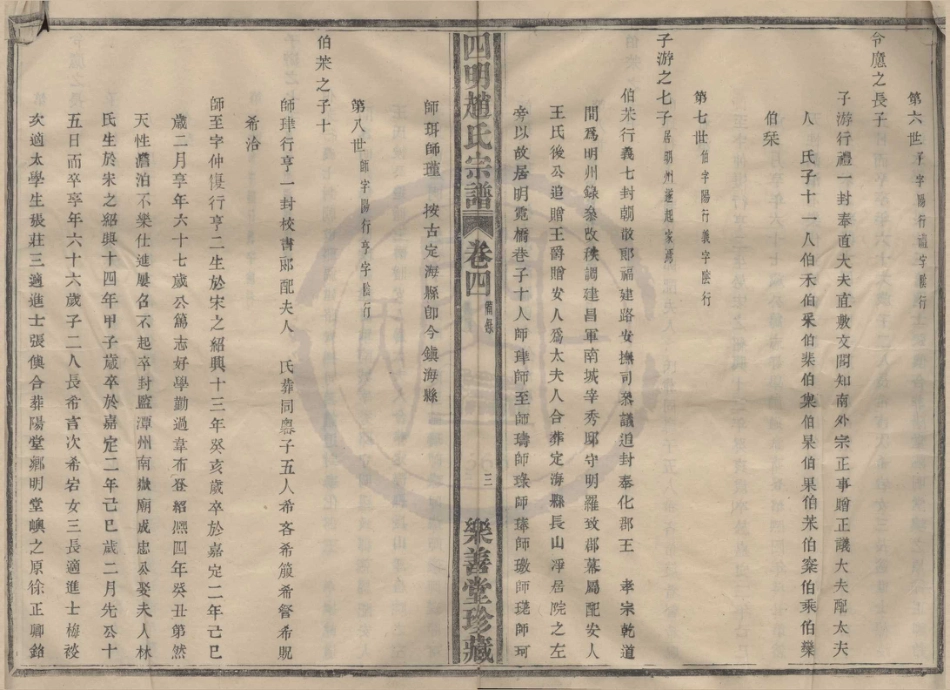 第六世 子字陽行禮字陰行
令應之長子
子游行禮一封奉直大夫直敷文閣知南外宗正事贈正議大夫配太夫
人 氏子十一人伯禾伯采伯柴伯㮤伯杲伯果伯茱伯案伯乘伯藥
伯栞
第七世 伯字陽行義字陰行
子游之七子 居明州遂起家焉
伯茱行義七封朝散郎福建路安撫司叅議追封奉化郡王 孝宗乾道
間爲明州錄叅改秩調建昌軍南城宰秀邸守明羅致郡幕屬配安人
王氏後公追贈王爵贈安人爲太夫人合葬定海縣長山淨居院之左
旁以故居明霓橋巷子十人師珒師至師璹師琭師瑧師璬師琷師珂
師珥師瑾 按古定海縣卽今鎮海縣
四明趙氏宗譜 卷四 備錄 三 樂善堂珍藏
第八世 師字陽行亨字陰行
伯茱之子十
師珒行亨一封校書郎配夫人 氏葬同嶴子五人希吝希筬希督希䝧
希洽
師至字仲復行亨二生於宋之紹興十三年癸亥歲卒於嘉定二年己巳
歲二月享年六十七歲公篤志好學勤過韋布登紹熙四年癸丑第然
天性澹泊不樂仕進屢召不起卒封監潭州南嶽廟成忠公娶夫人林
氏生於宋之紹興十四年甲子歲卒於嘉定二年己巳歲二月先公十
五日而卒卒年六十六歲子二人長希言次希岩女三長適進士樓
次適太學生張莊三適進士張僎合葬陽堂鄉明堂嶼之原徐正卿銘